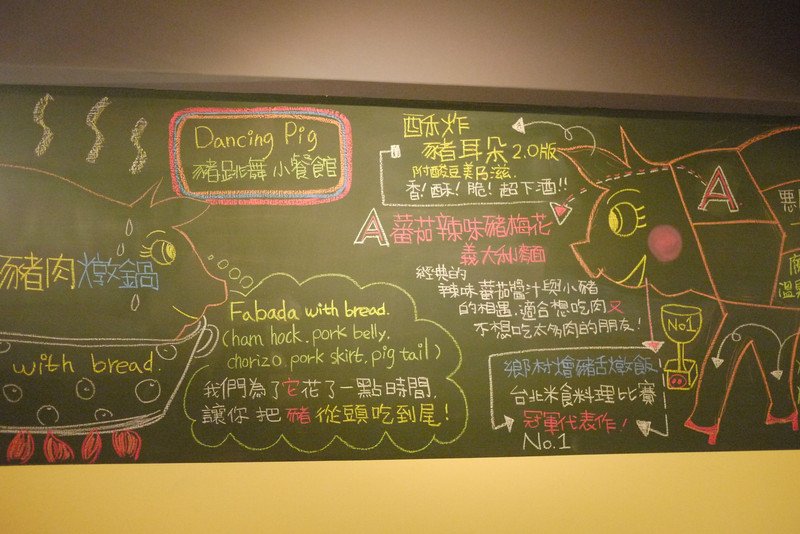 Dancing Pig
豬跳舞小餐館
豬肉燉鍋
with bread.
Fabada with bread.
(ham hock, pork belly,
chorizo, pork skirt, pig tail)
我們為了它花了一點時間,
讓你把豬從頭吃到尾!
酥炸
豬耳朵2.0版
附酸豆美乃滋.
香!酥!脆!超下酒!!
A 蕃茄辣味豬梅花
義大利麵
經典的
辣味蕃茄醬汁與小豬
的相遇,適合想吃肉又
不想吃太多肉的朋友!
鄉村燴豬舌燉飯
台北米食料理比賽
冠軍代表作!
No.1
No1
A